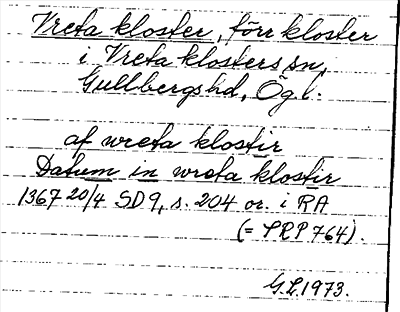 Vreta kloster, förr kloster
i Vreta klosters sn,
Gullbergs hd, Ögl.
af wreta klostir
Datum in wreta klostir
1367 20/4 SD 9, s. 204 or. i RA
(= SRP 764).
G.L. 1973.